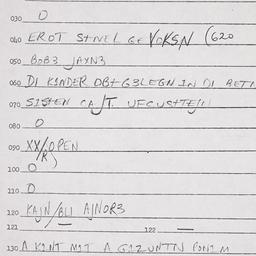 030 0
040 EROT STNEL GEVOKSN (620
050 BOB3 JAYN3
060 DI KINDER OBTG3LEGN IN DI BETN
070 SISTEN CA/T.
080 0
090 XX/OPEN
/R)
100 0
110 0
120 KAJN/BLI AJNOR3
121 — 122 —
130 A KINT MIT A G3ZUNTN PONIM